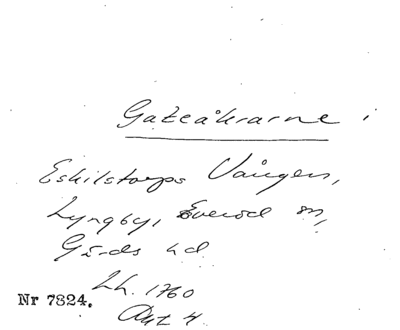 Gateåkrarne i
Eskilstorps Vången,
Lyngby, Everöd sn,
Gärds hd
Lh. 1760
Nr 7824.
Akt 4